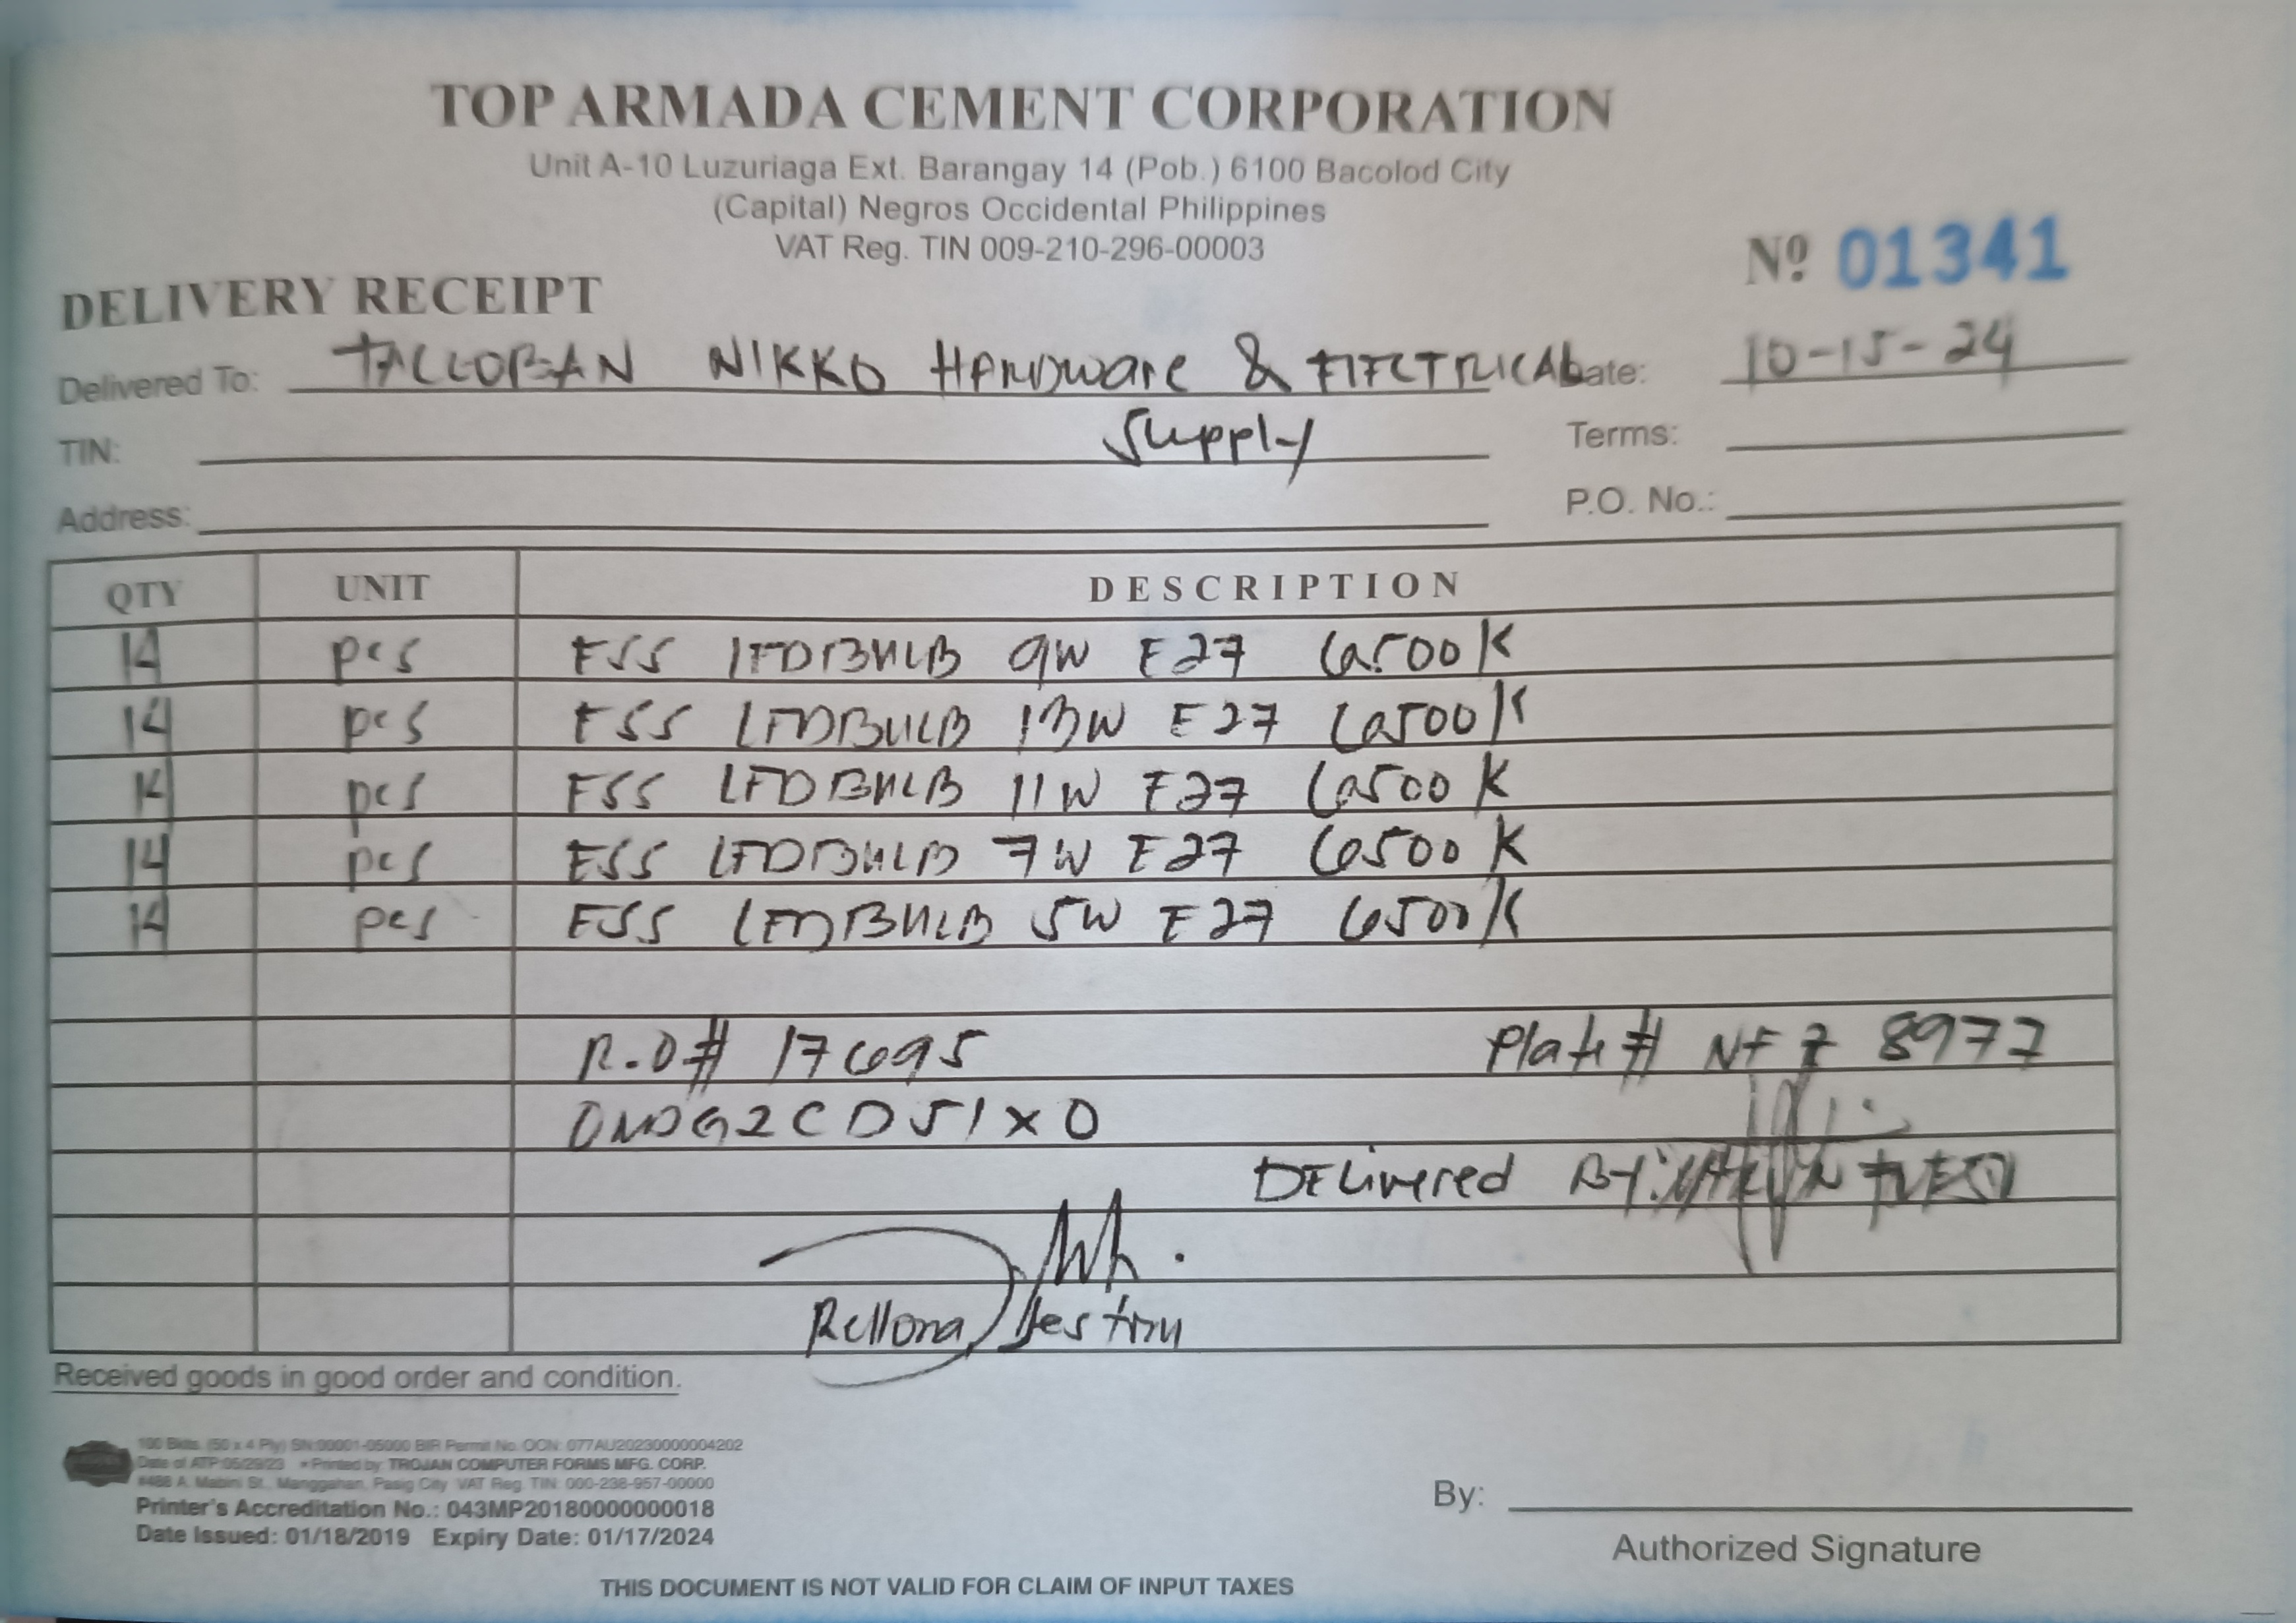 TOP ARMADA CEMENT CORPORATION
Unit A-10 Luzuriaga Ext. Barangay 14 (Pob.) 6100 Bacolod City
(Capital) Negros Occidental Philippines
VAT Reg. TIN 009-210-296-00003
Nº 01341
DELIVERY RECEIPT
Delivered To: TACLOBAN NIKKO HARDWARE & ELECTRICAL Date: 10-15-24
Supply
TIN: Terms:
Address: P.O. No.:
QTY UNIT DESCRIPTION
14 pcs ESS LEDBULB 9W E27 6500K
14 pcs ESS LEDBULB 13W E27 6500K
14 pcs ESS LEDBULB 11W E27 6500K
14 pcs ESS LEDBULB 7W E27 6500K
14 pcs ESS LEDBULB 5W E27 6500K
R.O# 17695 Plate # 8977
DELivered By:
Rellona
Received goods in good order and condition.
100 Bklts. (50 x 4 Ply) SN:00001-05000 BIR Permit No. OCN: 077AU20230000004202
Date of ATP:05/29/23 • Printed by: TROJAN COMPUTER FORMS MFG. CORP.
#488 A. Mabini St., Manggahan, Pasig City VAT Reg. TIN: 000-238-957-00000
Printer's Accreditation No.: 043MP20180000000018
Date Issued: 01/18/2019 Expiry Date: 01/17/2024
By:
Authorized Signature
THIS DOCUMENT IS NOT VALID FOR CLAIM OF INPUT TAXES